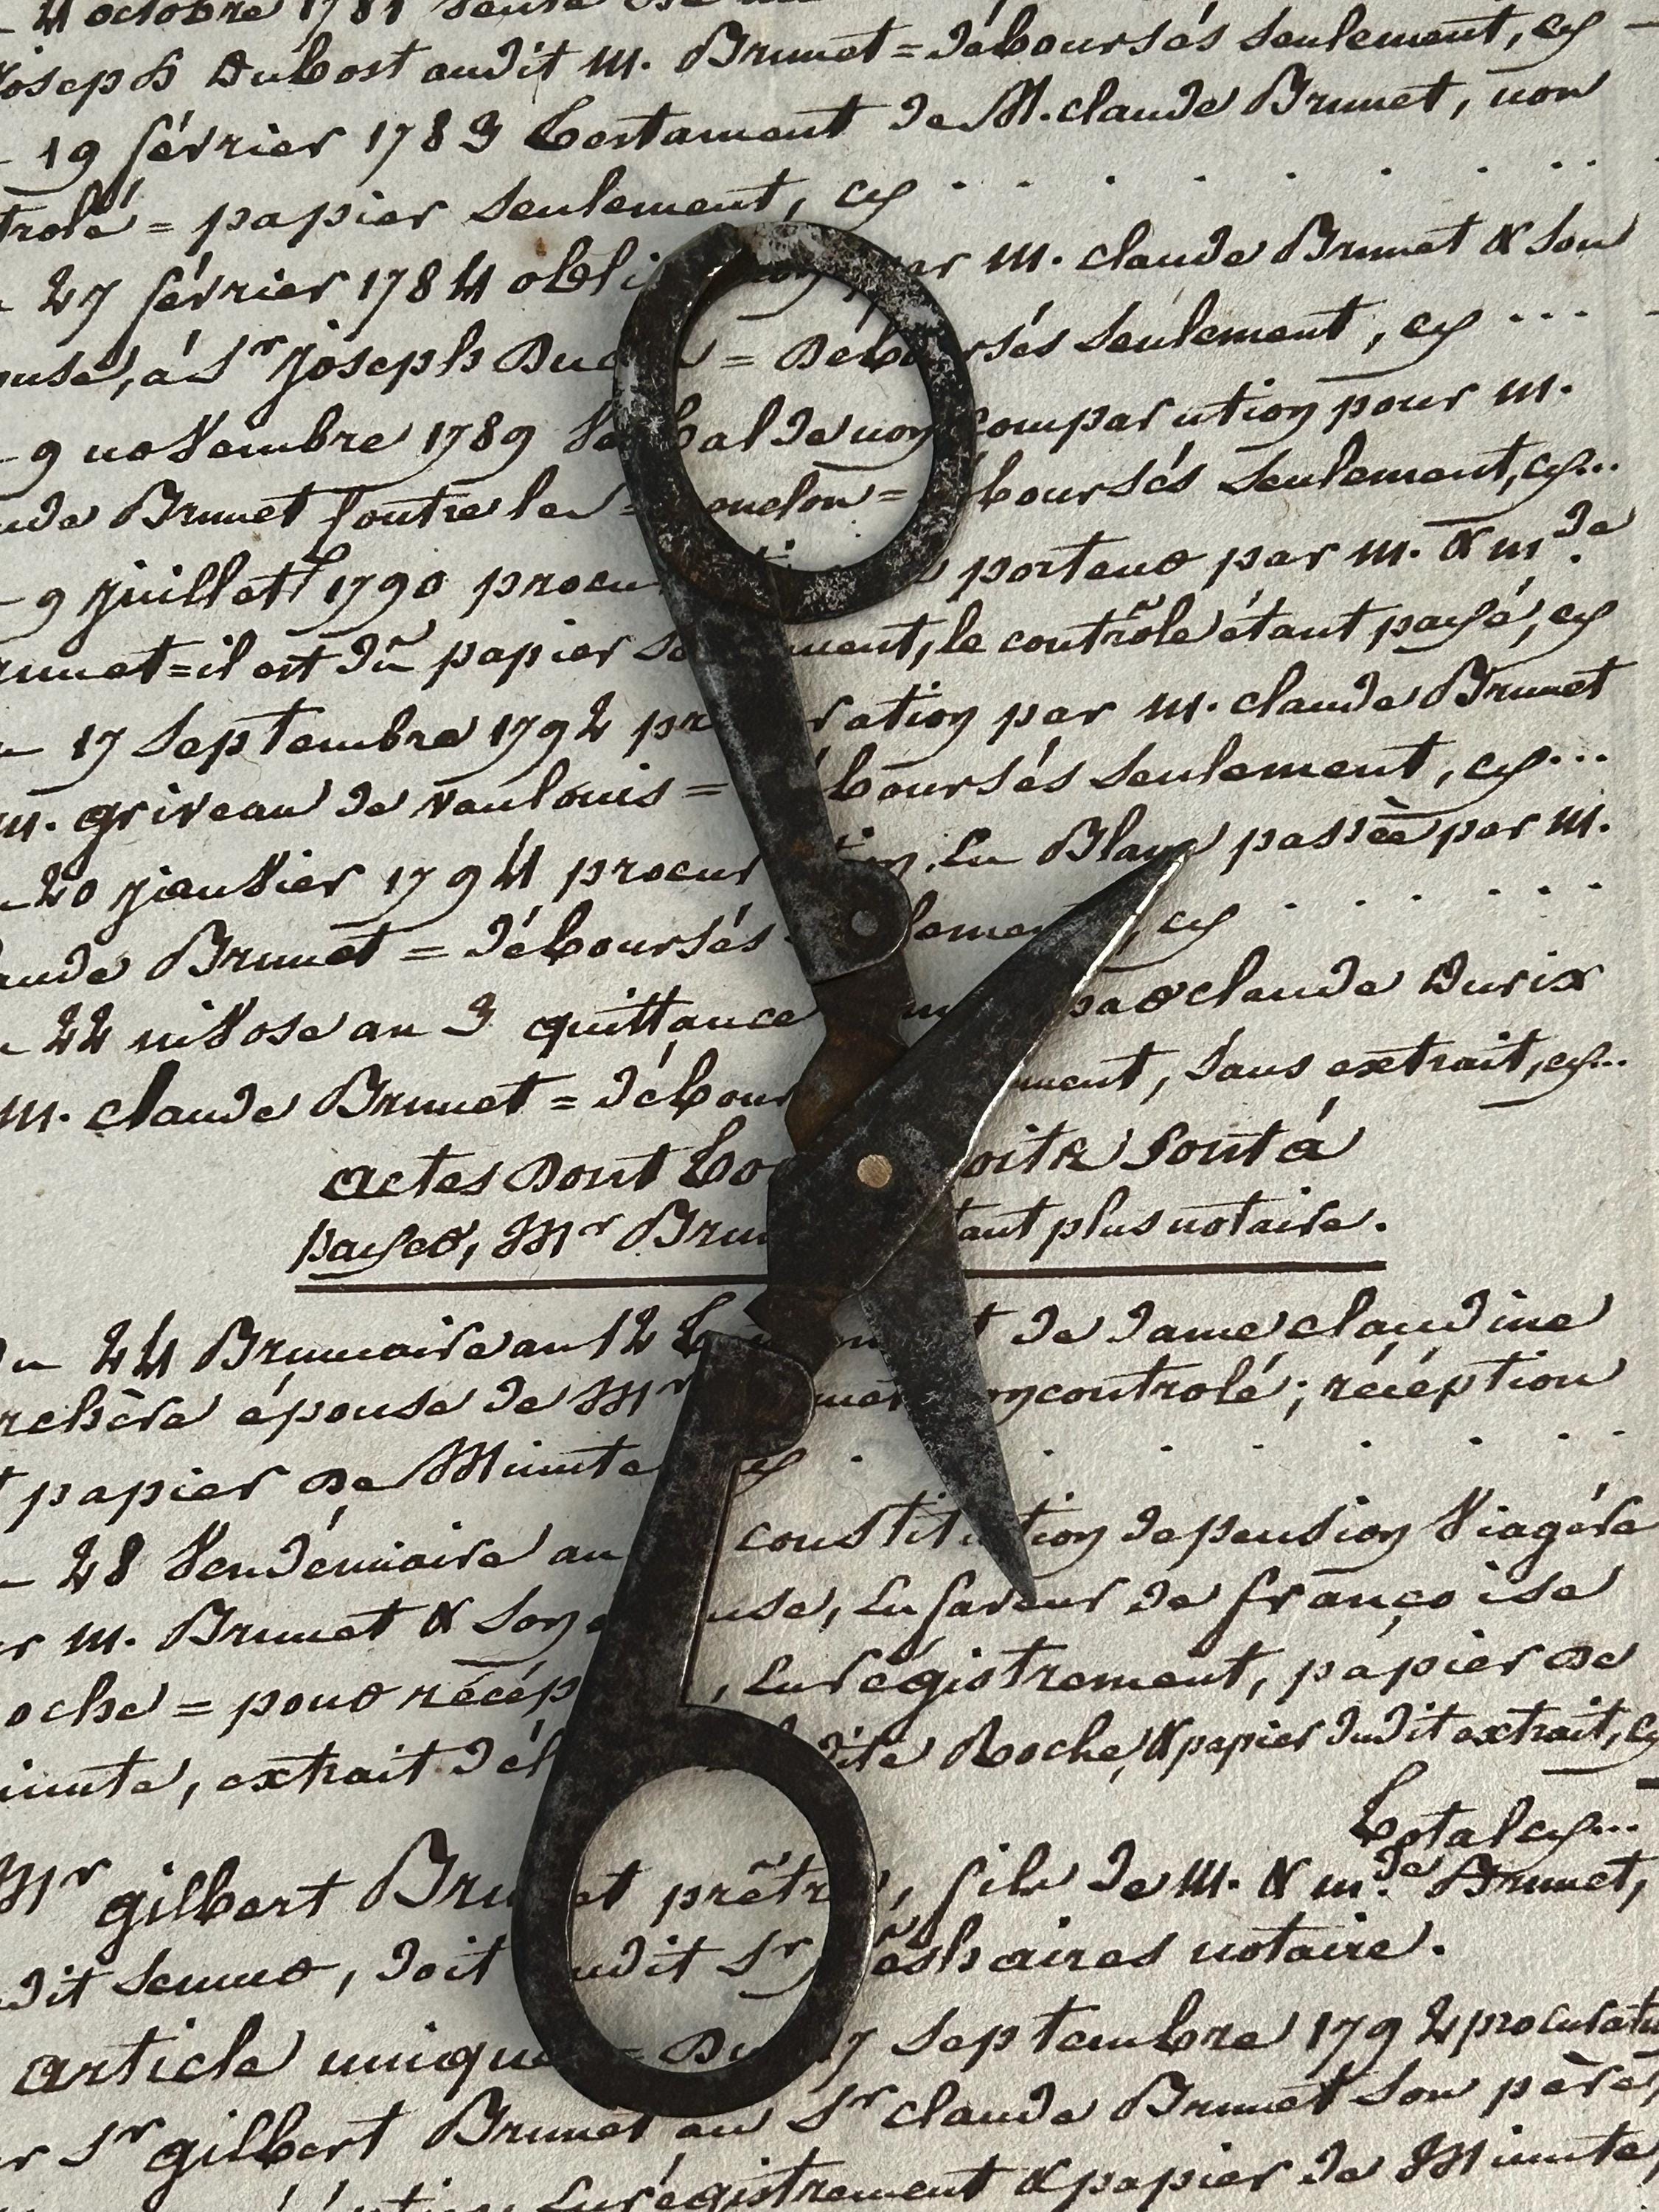 4 octobre 1781
Joseph Dubost audit m. Brunet = déboursés seulement, cy
19 février 1783 testament de M. claude Brunet, non
trolé = papier seulement, cy . . . . . . . .
27 février 1784 obli par m. claude Brunet & son
ouse, a Sr. Joseph Du = débo rsés seulement, cy ...
9 novembre 1789 Ve bal de non comparution pour m.
ude Brunet contre le = onclon = boursés seulement, cy...
9 juillet 1790 procu porteur par m. & mde.
runet = il est dû papier se ment, le contrôle étant payé, cy
17 Septembre 1792 pr ration par m. claude Brunet
m. griveau de vaulouis = boursés seulement, cy...
20 janvier 1794 procur tion en Blanc passée par m.
aude Brunet = déboursés lement, cy . . . . . .
22 nivose an 3 quittance par claude Durix
m. claude Brunet = débour ment, sans extrait, cy...
actes dont to oits sont à
payer, Mr Brun tant plus notaire.
Du 24 Brumaire an 12 t de dame claudine
rchère épouse de Mr net non controlé; récéption
t papier de Minute cy . . . . . . .
28 Vendémiaire an constitution de pension viagére
r m. Brunet & son é use, en faveur de françoise
oche = pour récép , enrégistrement, papier de
inute, extrait dél dite Roche, & papier dudit extrait, cy
total cy...
Mr gilbert Brunet prêtre, fils de m. & mde. Brunet,
dit semur, doit audit Sr. Deshaires notaire.
article unique = Du 17 septembre 1792 procurat
r Sr gilbert Brunet au Sr claude Brunet son père,
enrégistrement & papier de Minute,